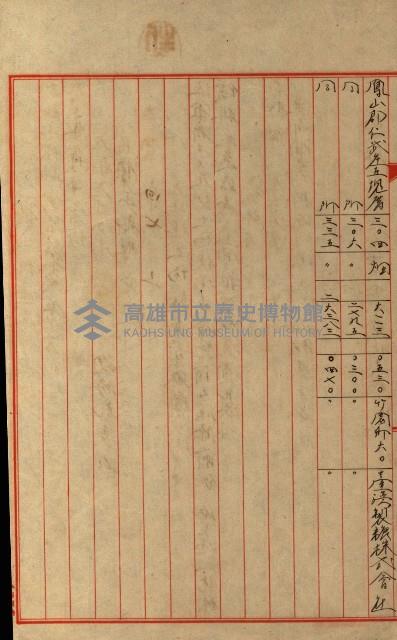 鳳山郡仁武庄五塊厝 三〇四 畑 六二三 〇五三〇 竹園町六〇 臺湾製糖株式会社
同 所 三〇六 〃 二七九五 〇三〇〇 〃 〃
同 所 三三五 〃 二六三八三 〇四七〇 〃 〃
高雄市立歷史博物館
KAOHSIUNG MUSEUM OF HISTORY